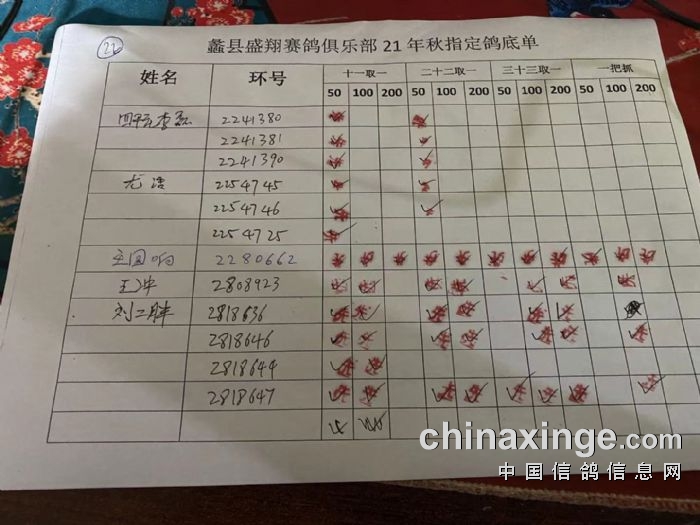 22
蠡县盛翔赛鸽俱乐部21年秋指定鸽底单
姓名 环号 十一取一 二十二取一 三十三取一 一把抓
50 100 200 50 100 200 50 100 200 50 100 200
李磊 2241380
2241381
2241390
尤浩 2254745
2254746
2254725
2280662
王冲 2808923
刘二胖 2818636
2818646
2818644
2818647
chinaxinge.com
中国信鸽信息网